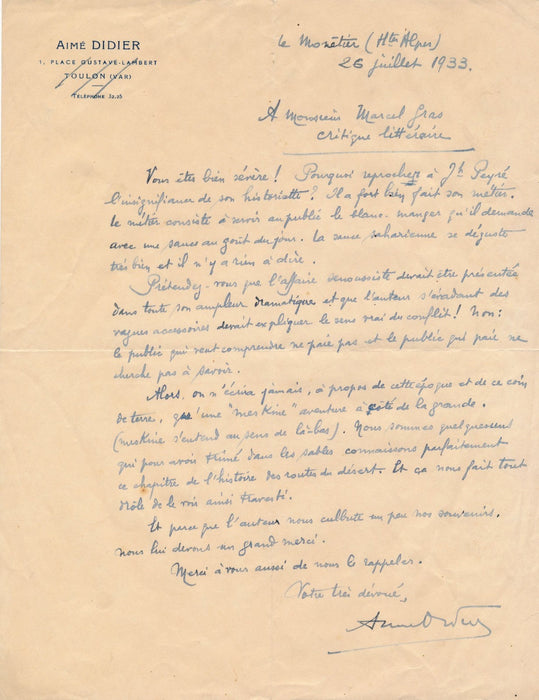 AIMÉ DIDIER
1, PLACE GUSTAVE-LAMBERT
TOULON (VAR)
TÉLÉPHONE 32.35
Le Monêtier (Htes Alpes)
26 juillet 1933.
A Monsieur Marcel Gras
critique littéraire
Vous êtes bien sévère ! Pourquoi reprochez à Jh Peyré
l'insignifiance de son historiette ? Il a fort bien fait son métier.
Le métier consiste à servir au public le blanc-manger qu'il demande
avec une sauce au goût du jour. La sauce saharienne se déguste
très bien et il n'y a rien à dire.
Prétendez-vous que l'affaire senoussiste devait être présentée
dans toute son ampleur dramatique et que l'auteur s'évadant des
vagues accessoires devait expliquer le sens vrai du conflit ! Non :
le public qui veut comprendre ne paie pas et le public qui paie ne
cherche pas à savoir.
Alors, on n'écrira jamais, à propos de cette époque et de ce coin
de terre, qu'une "meskine" aventure à côté de la grande.
(meskine s'entend au sens de là-bas). Nous sommes quelques uns
qui pour avoir trimé dans les sables connaissons parfaitement
ce chapitre de l'histoire des routes du désert. Et ça nous fait tout
drôle de le voir ainsi travesti.
Et parce que l'auteur nous culbute un peu nos souvenirs,
nous lui devons un grand merci.
Merci à vous aussi de nous le rappeler.
Votre très dévoué,
Aimé Didier